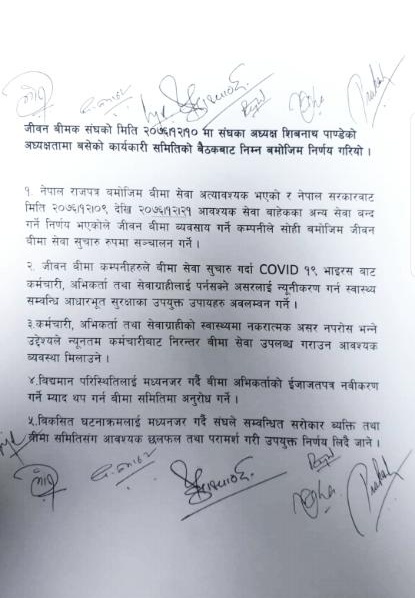 जीवन बीमक संघको मिति २०७६।१२।१० मा संघका अध्यक्ष शिबनाथ पाण्डेको
अध्यक्षतामा बसेको कार्यकारी समितिको बैठकबाट निम्न बमोजिम निर्णय गरियो ।
१. नेपाल राजपत्र बमोजिम बीमा सेवा अत्यावश्यक भएको र नेपाल सरकारबाट
मिति २०७६।१२।०९ देखि २०७६।१२।२१ आवश्यक सेवा बाहेकका अन्य सेवा बन्द
गर्ने निर्णय भएकोले जीवन बीमा व्यवसाय गर्ने कम्पनीले सोही बमोजिम जीवन
बीमा सेवा सुचारु रुपमा सञ्चालन गर्ने ।
२. जीवन बीमा कम्पनीहरुले बीमा सेवा सुचारु गर्दा COVID १९ भाइरस बाट
कर्मचारी, अभिकर्ता तथा सेवाग्राहीलाई पर्नसक्ने असरलाई न्यूनीकरण गर्न स्वास्थ्य
सम्बन्धि आधारभूत सुरक्षाका उपयुक्त उपायहरु अवलम्बन गर्ने ।
३.कर्मचारी, अभिकर्ता तथा सेवाग्राहीको स्वास्थ्यमा नकरात्मक असर नपरोस भन्ने
उद्देश्यले न्यूनतम कर्मचारीबाट निरन्तर बीमा सेवा उपलब्ध गराउन आवश्यक
व्यवस्था मिलाउने ।
४.बिद्यमान परिस्थितिलाई मध्यनजर गर्दै बीमा अभिकर्ताको ईजाजतपत्र नवीकरण
गर्ने म्याद थप गर्न बीमा समितिमा अनुरोध गर्ने ।
५.बिकसित घटनाक्रमलाई मध्यनजर गर्दै संघले सम्बन्धित सरोकार ब्यक्ति तथा
बीमा समितिसंग आवश्यक छलफल तथा परामर्श गरी उपयुक्त निर्णय लिदै जाने ।